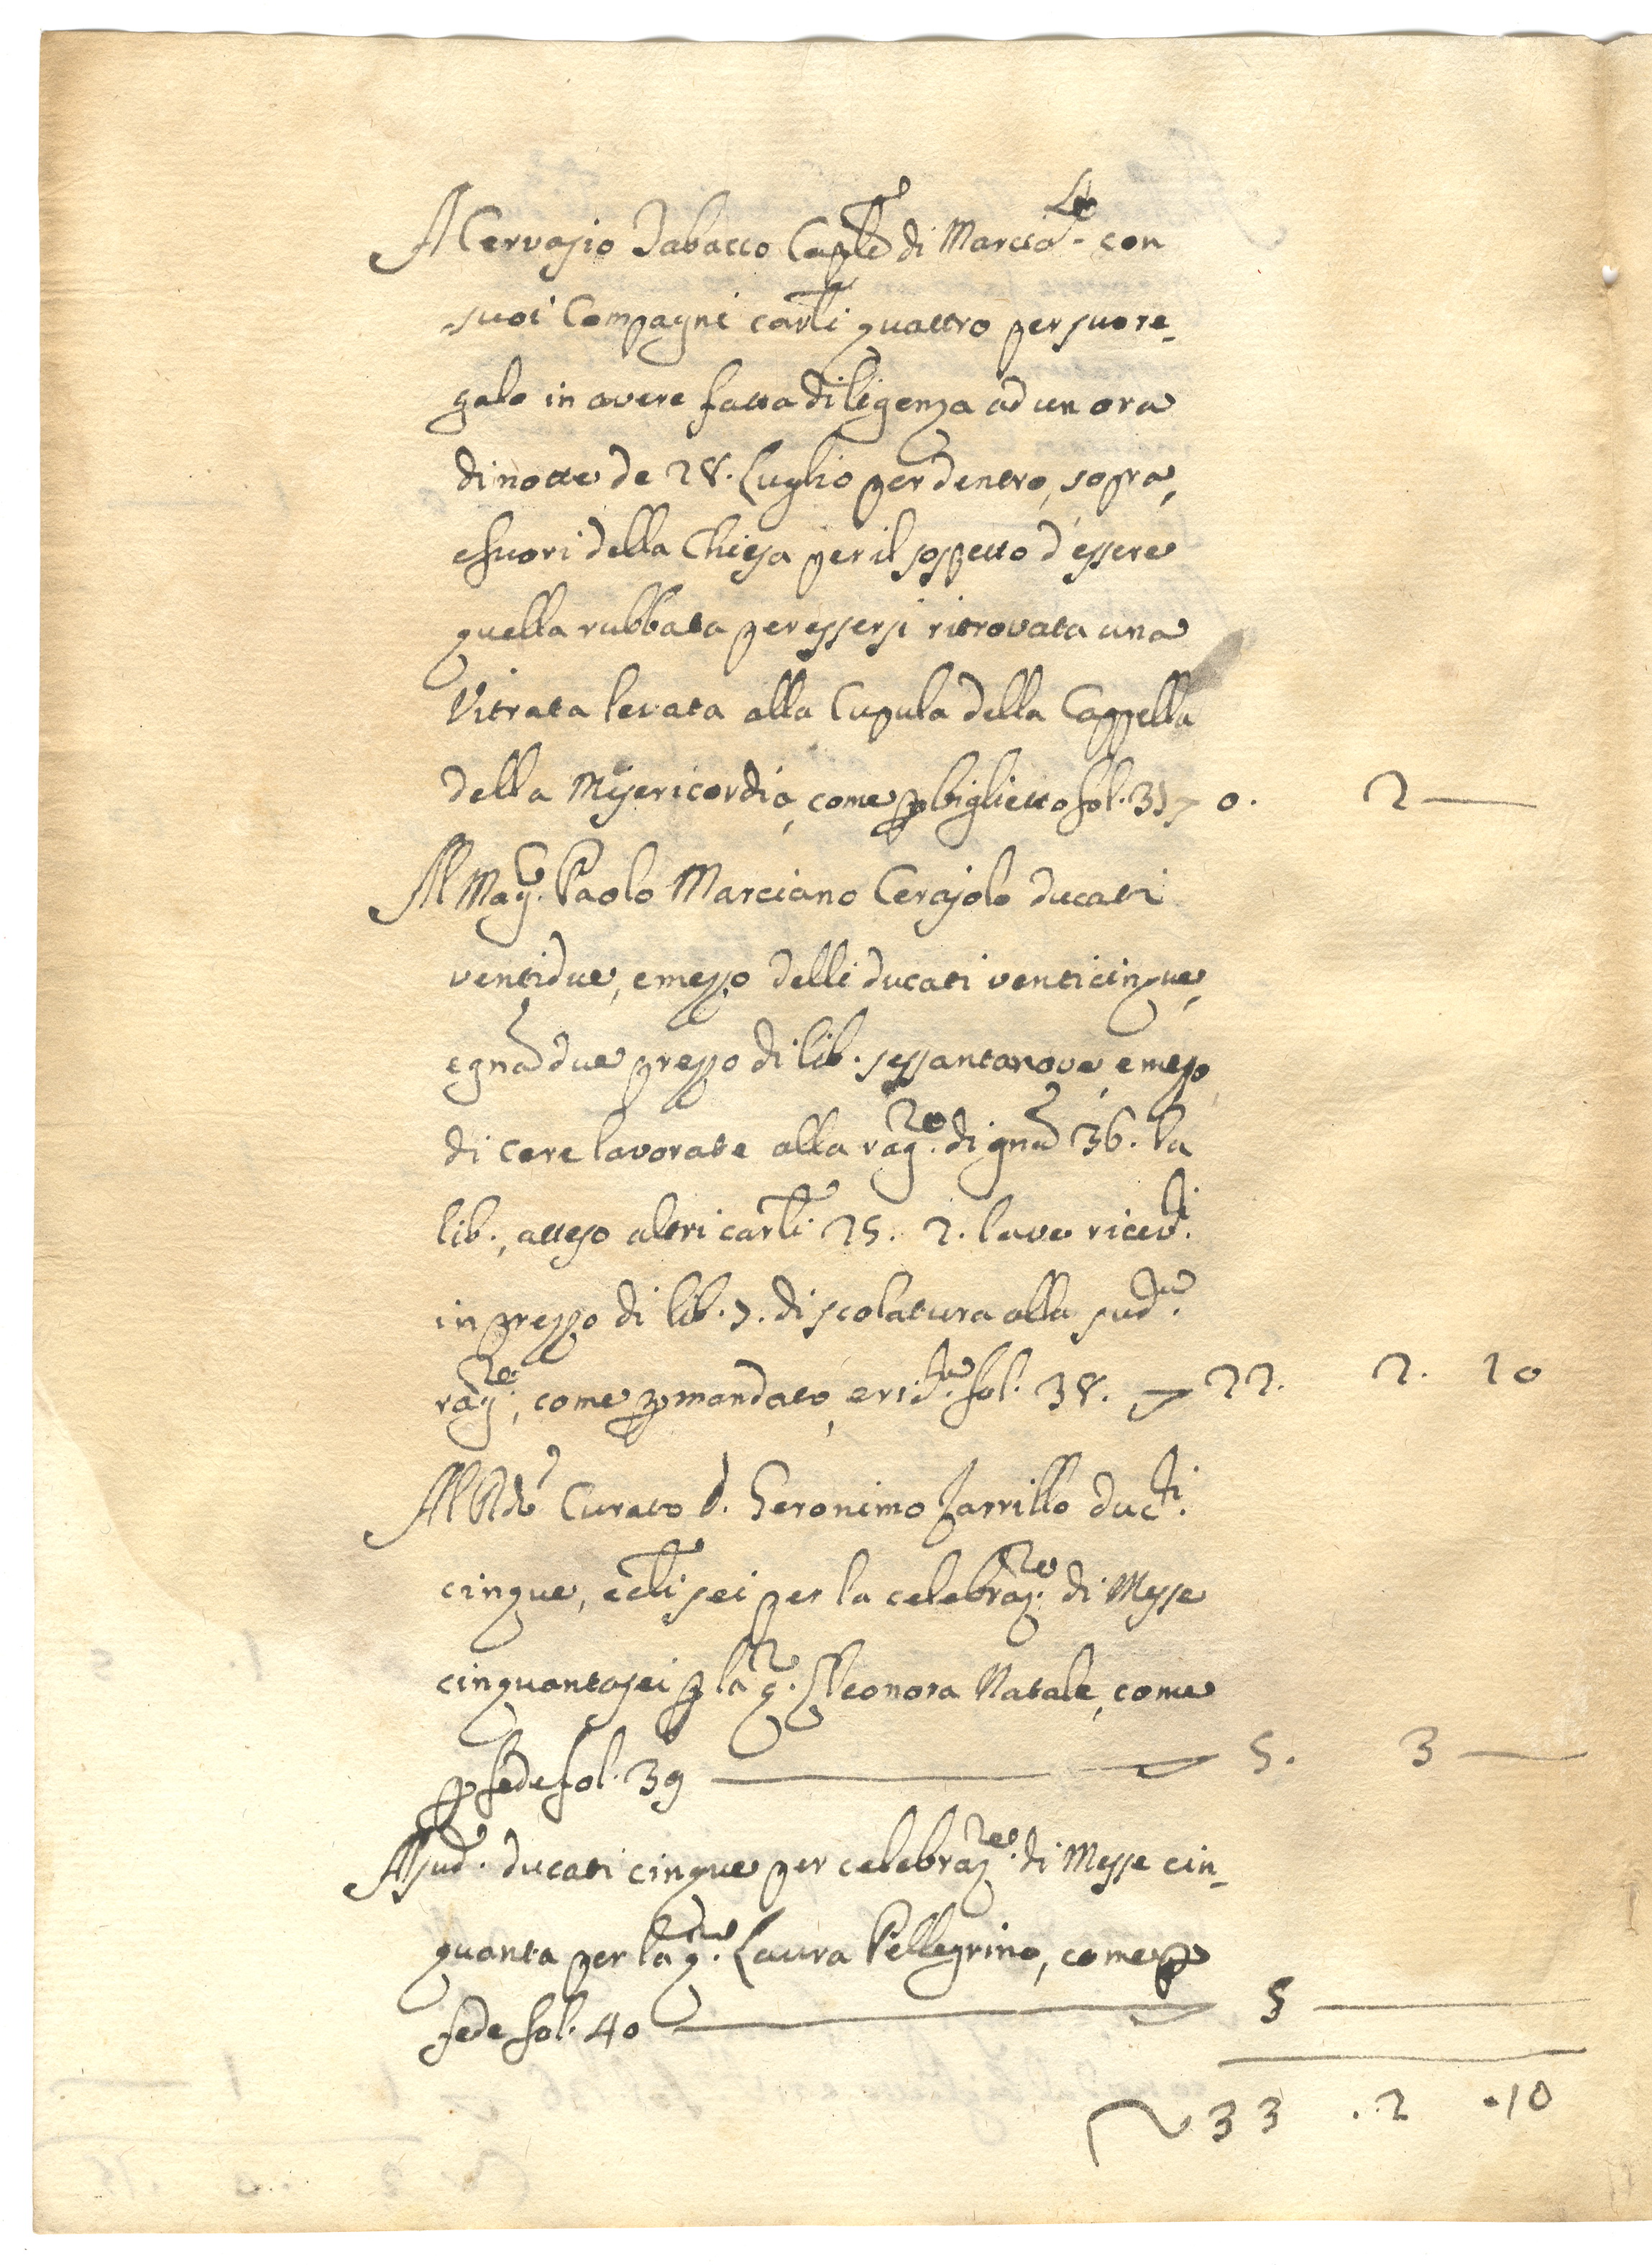 A Cervasio Tabacco Cap.le di Marcia.- con
suoi Compagni carli quattro per suo re-
galo in avere fatta diligenza ad un ora
di notte de 28. Luglio per dentro, sopra,
e fuori della Chiesa per il sospetto d'essere
quella rubbata per essersi ritrovata una
Vitrata levata alla Cupula della Cappella
della Misericordia, come p biglietto fol. 37 0. 2 —
Al Mag.co Paolo Marciano Cerajolo ducati
ventidue, e mezzo delli ducati venticinque,
e gna due prezzo di lib. sessantanove, e mezo
di cere lavorate alla rag.ne di gna 36. la
lib., atteso altri carli 25. 2. l'ave ricev.ti
in prezzo di lib. 7. di scolatura alla sud.a
rag.ne, come p mandato, e ric.ta fol. 38. 22. 2. 10
Al Rdo Curato D. Geronimo Jarrillo duc.ti
cinque, e cli sei per la celebraz.ne di Messe
cinquantasei p la q. Eleonora Natale, come
p fede fol. 39 — 5. 3 —
Al sud.o ducati cinque per celebraz.ne di Messe cin-
quanta per la q. Laura Pellegrino, come p
fede fol. 40 — 5 —
33 .2 .10